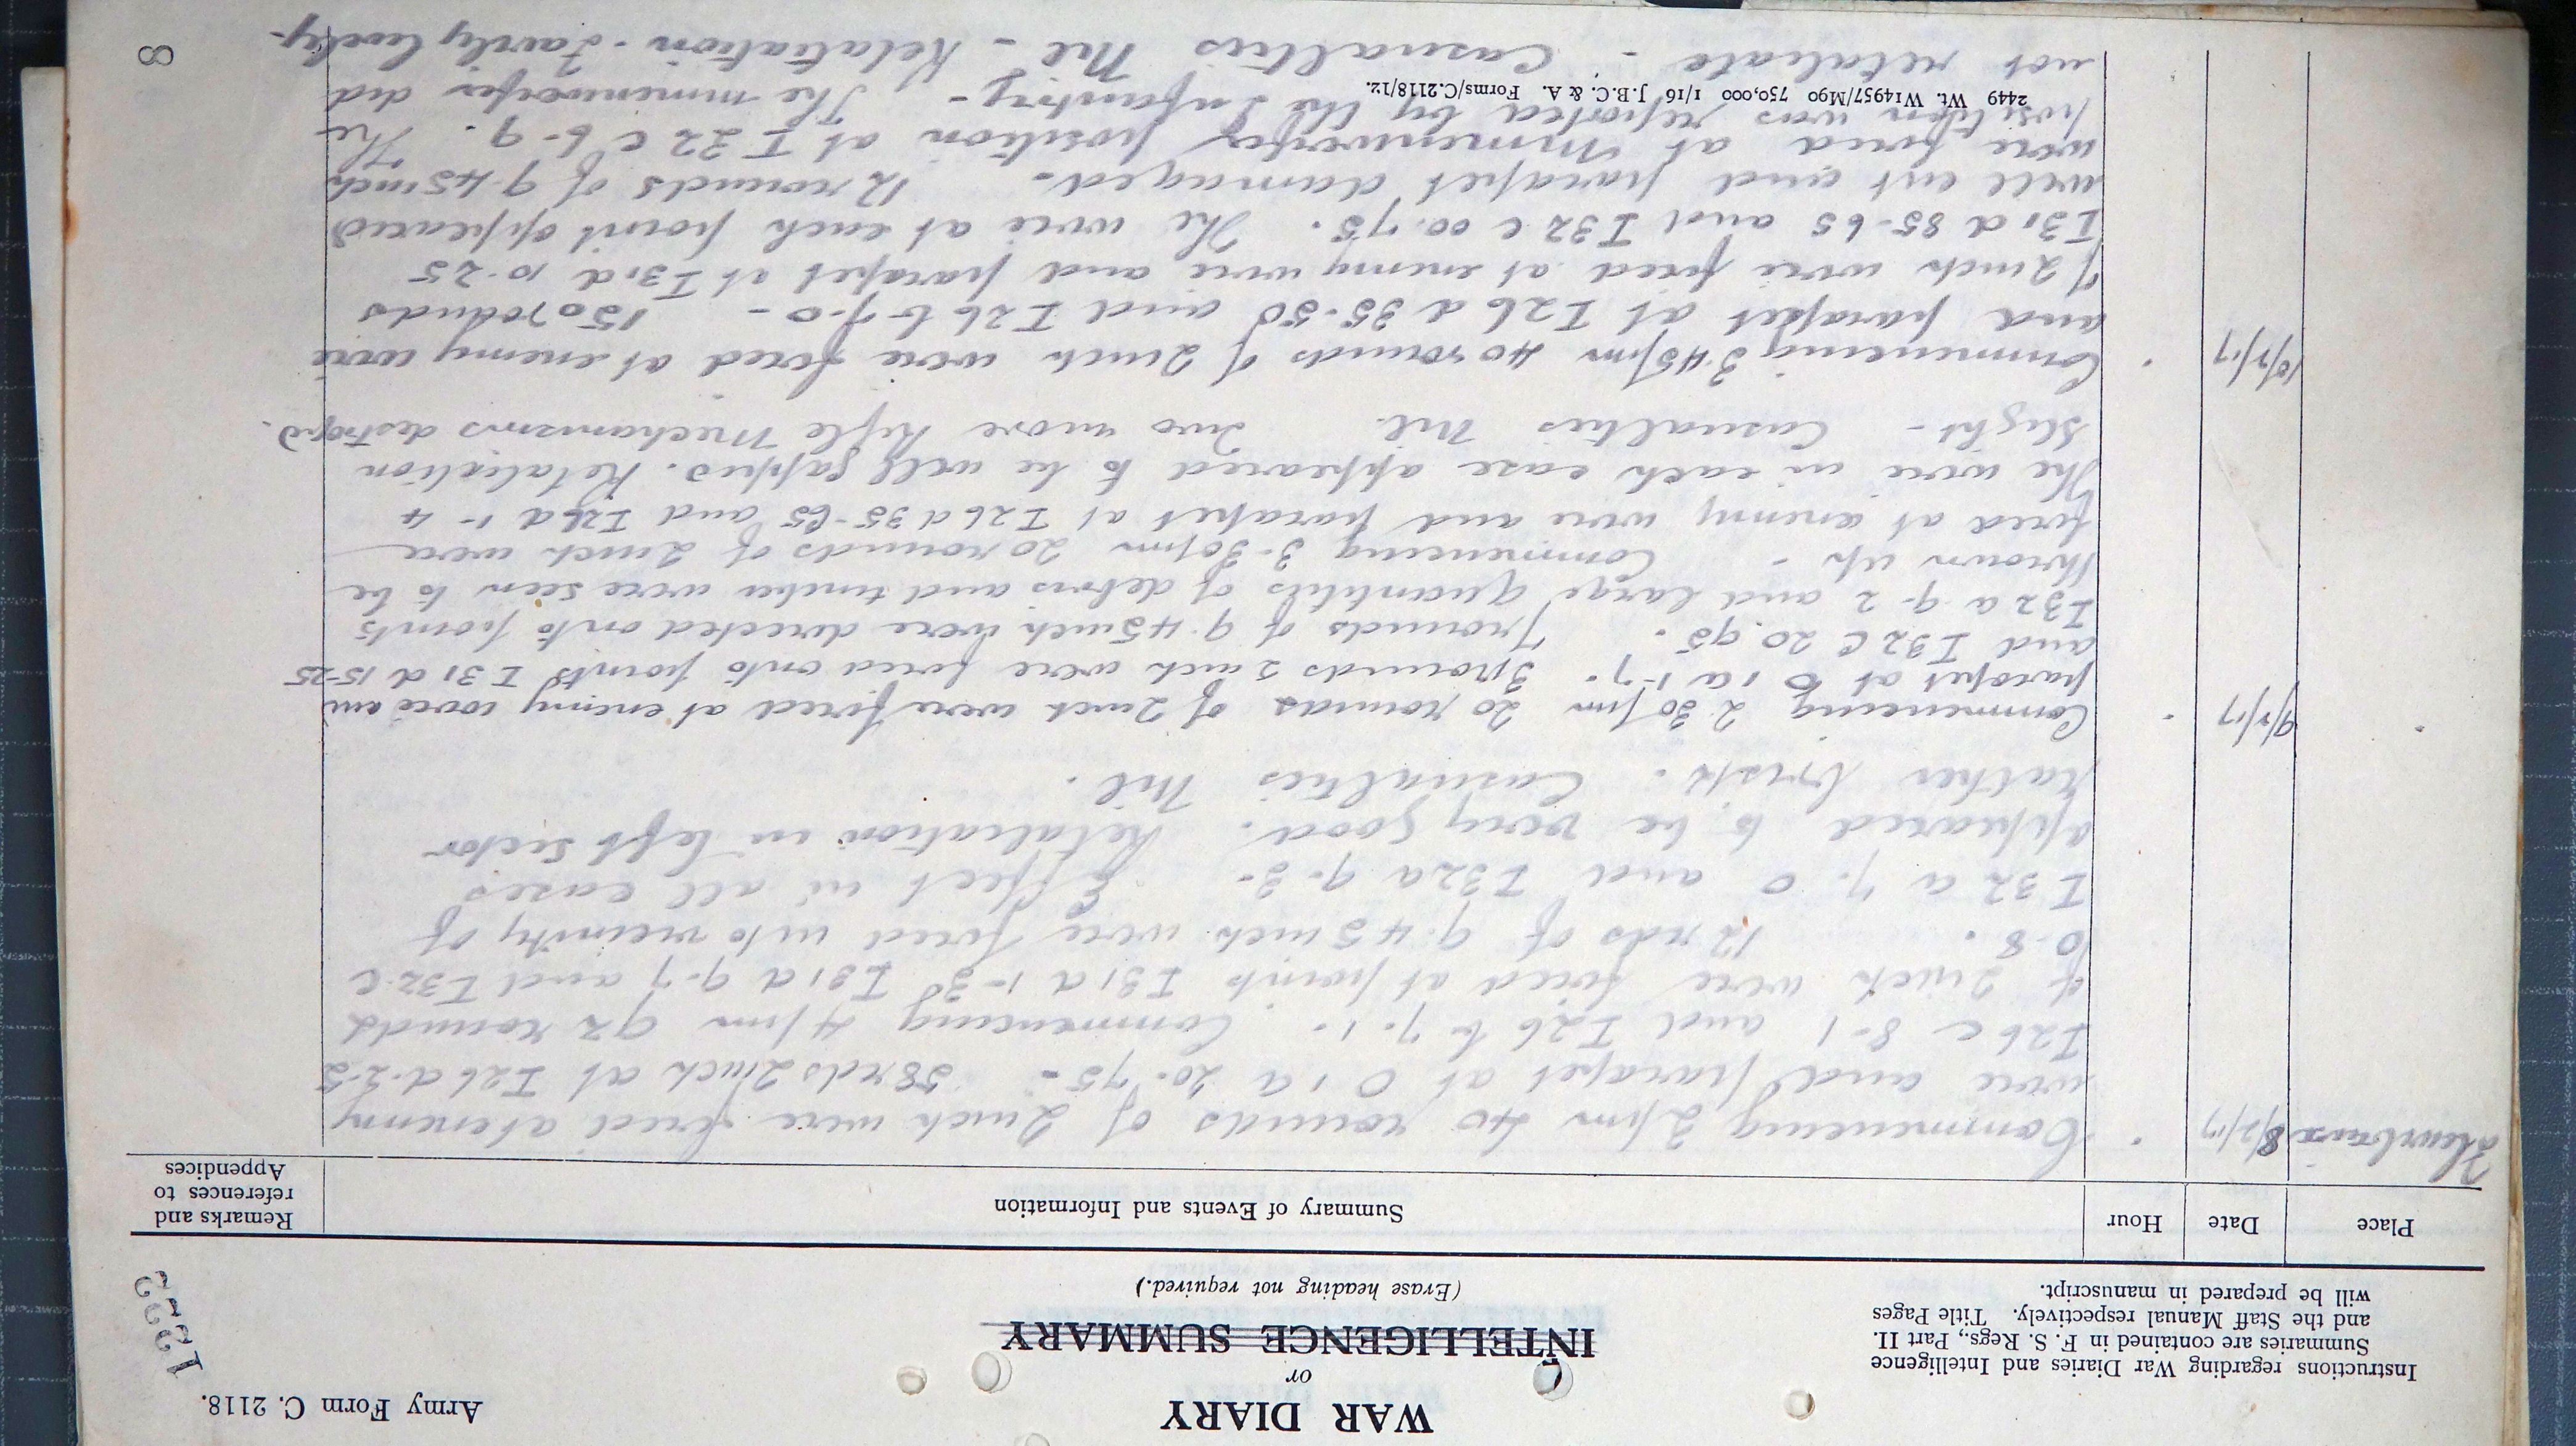 Army Form C. 2118.
WAR DIARY
or
INTELLIGENCE SUMMARY
(Erase heading not required.)
Instructions regarding War Diaries and Intelligence
Summaries are contained in F. S. Regs., Part II.
and the Staff Manual respectively. Title Pages
will be prepared in manuscript.
1222
Place Date Hour Summary of Events and Information Remarks and references to Appendices
Fleurbaix 8/2/17 Commencing 2 pm 40 rounds of 2 inch were fired at enemy
wire and parapet at O 1 a 20.75 - 58 rds 2 inch at I 26 d.2-2
I 26 c 8-1 and I 26 b 7.1 - Commencing 4 pm 92 rounds
of 2 inch were fired at points I 31 d 1-3 I 31 d 9-7 and I 32 c
0-8. 12 rds of 9.45 inch were fired into vicinity of
I 32 a 7.0 and I 32 a 9-3 - Effect in all cases
appeared to be very good. Retaliation in left sector
rather brisk. Casualties Nil.
9/2/17 Commencing 2 30 pm 20 rounds of 2 inch were fired at enemy wire and
parapet at O 1 a 1-7. 3 rounds 2 inch were fired onto points I 31 d 15-25
and I 32 C 20.95. 7 rounds of 9.45 inch were directed onto points
I 32 a 9-2 and large quantities of debris and timber were seen to be
thrown up - Commencing 3-30 pm 20 rounds of 2 inch were
fired at enemy wire and parapet at I 26 d 35-65 and I 26 d 1-4
The wire in each case appeared to be well gapped. Retaliation
slight - Casualties Nil. Two more Rifle Mechanisms destroyed.
10/2/17 Commencing 3.45 pm 40 rounds of 2 inch were fired at enemy wire
and parapet at I 26 d 35-50 and I 26 b 7-0 - 150 rounds
of 2 inch were fired at enemy wire and parapet at I 31 d 10-25
I 31 d 85-65 and I 32 c 00.75. The wire at each point appeared
well cut and parapet damaged - 12 rounds of 9.45 inch
were fired at Minenwerfer position at I 32 C 6-9. The
position was reported by the Infantry - The minenwerfer did
not retaliate - Casualties Nil - Retaliation - Fairly lively -
2449 Wt. W14957/M90 750,000 1/16 J.B.C. & A. Forms/C.2118/12.
8